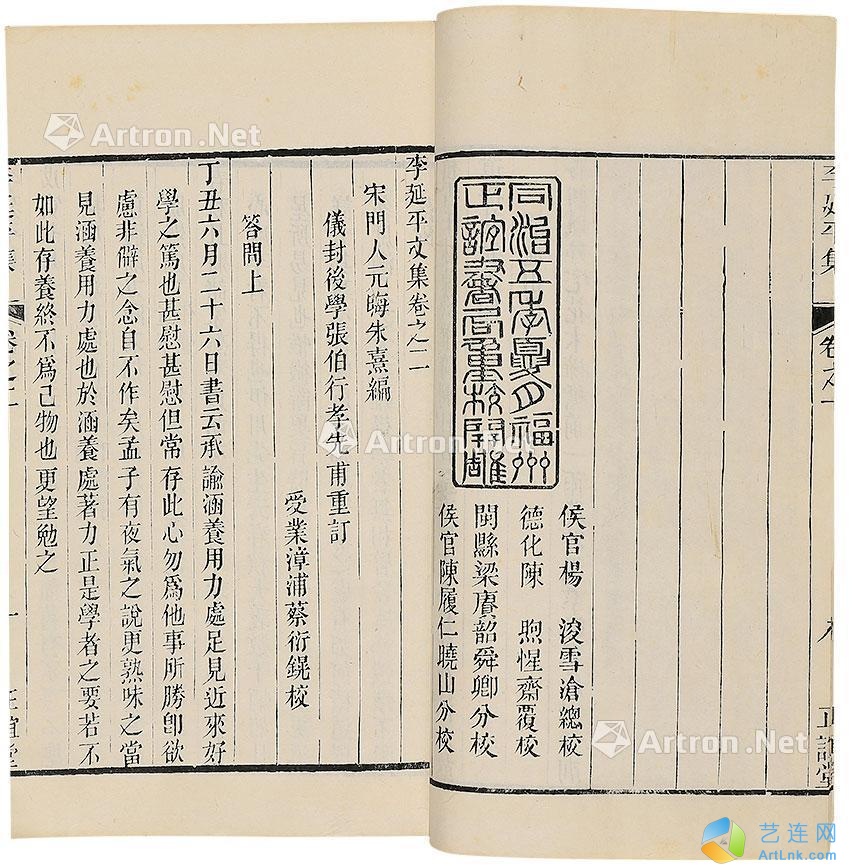 李延平集
卷之一
正誼堂
同治五年夏月福州
正誼書局重校開雕
侯官楊 浚雪滄總校
德化陳 煦惺齋覆校
閩縣梁賡韶舜卿分校
侯官陳履仁曉山分校
李延平文集卷之二
宋門人元晦朱熹編
儀封後學張伯行孝先甫重訂
受業漳浦蔡衍鎤校
答問上
丁丑六月二十六日書云承諭涵養用力處足見近來好
學之篤也甚慰甚慰但常存此心勿爲他事所勝卽欲
慮非僻之念自不作矣孟子有夜氣之說更熟味之當
見涵養用力處也於涵養處著力正是學者之要若不
如此存養終不爲己物也更望勉之
李延平集
卷之二
一
正誼堂
Artron.Net
Artron.Net
Artron.Net
Artron.Net
艺连网
ArtLnk.com